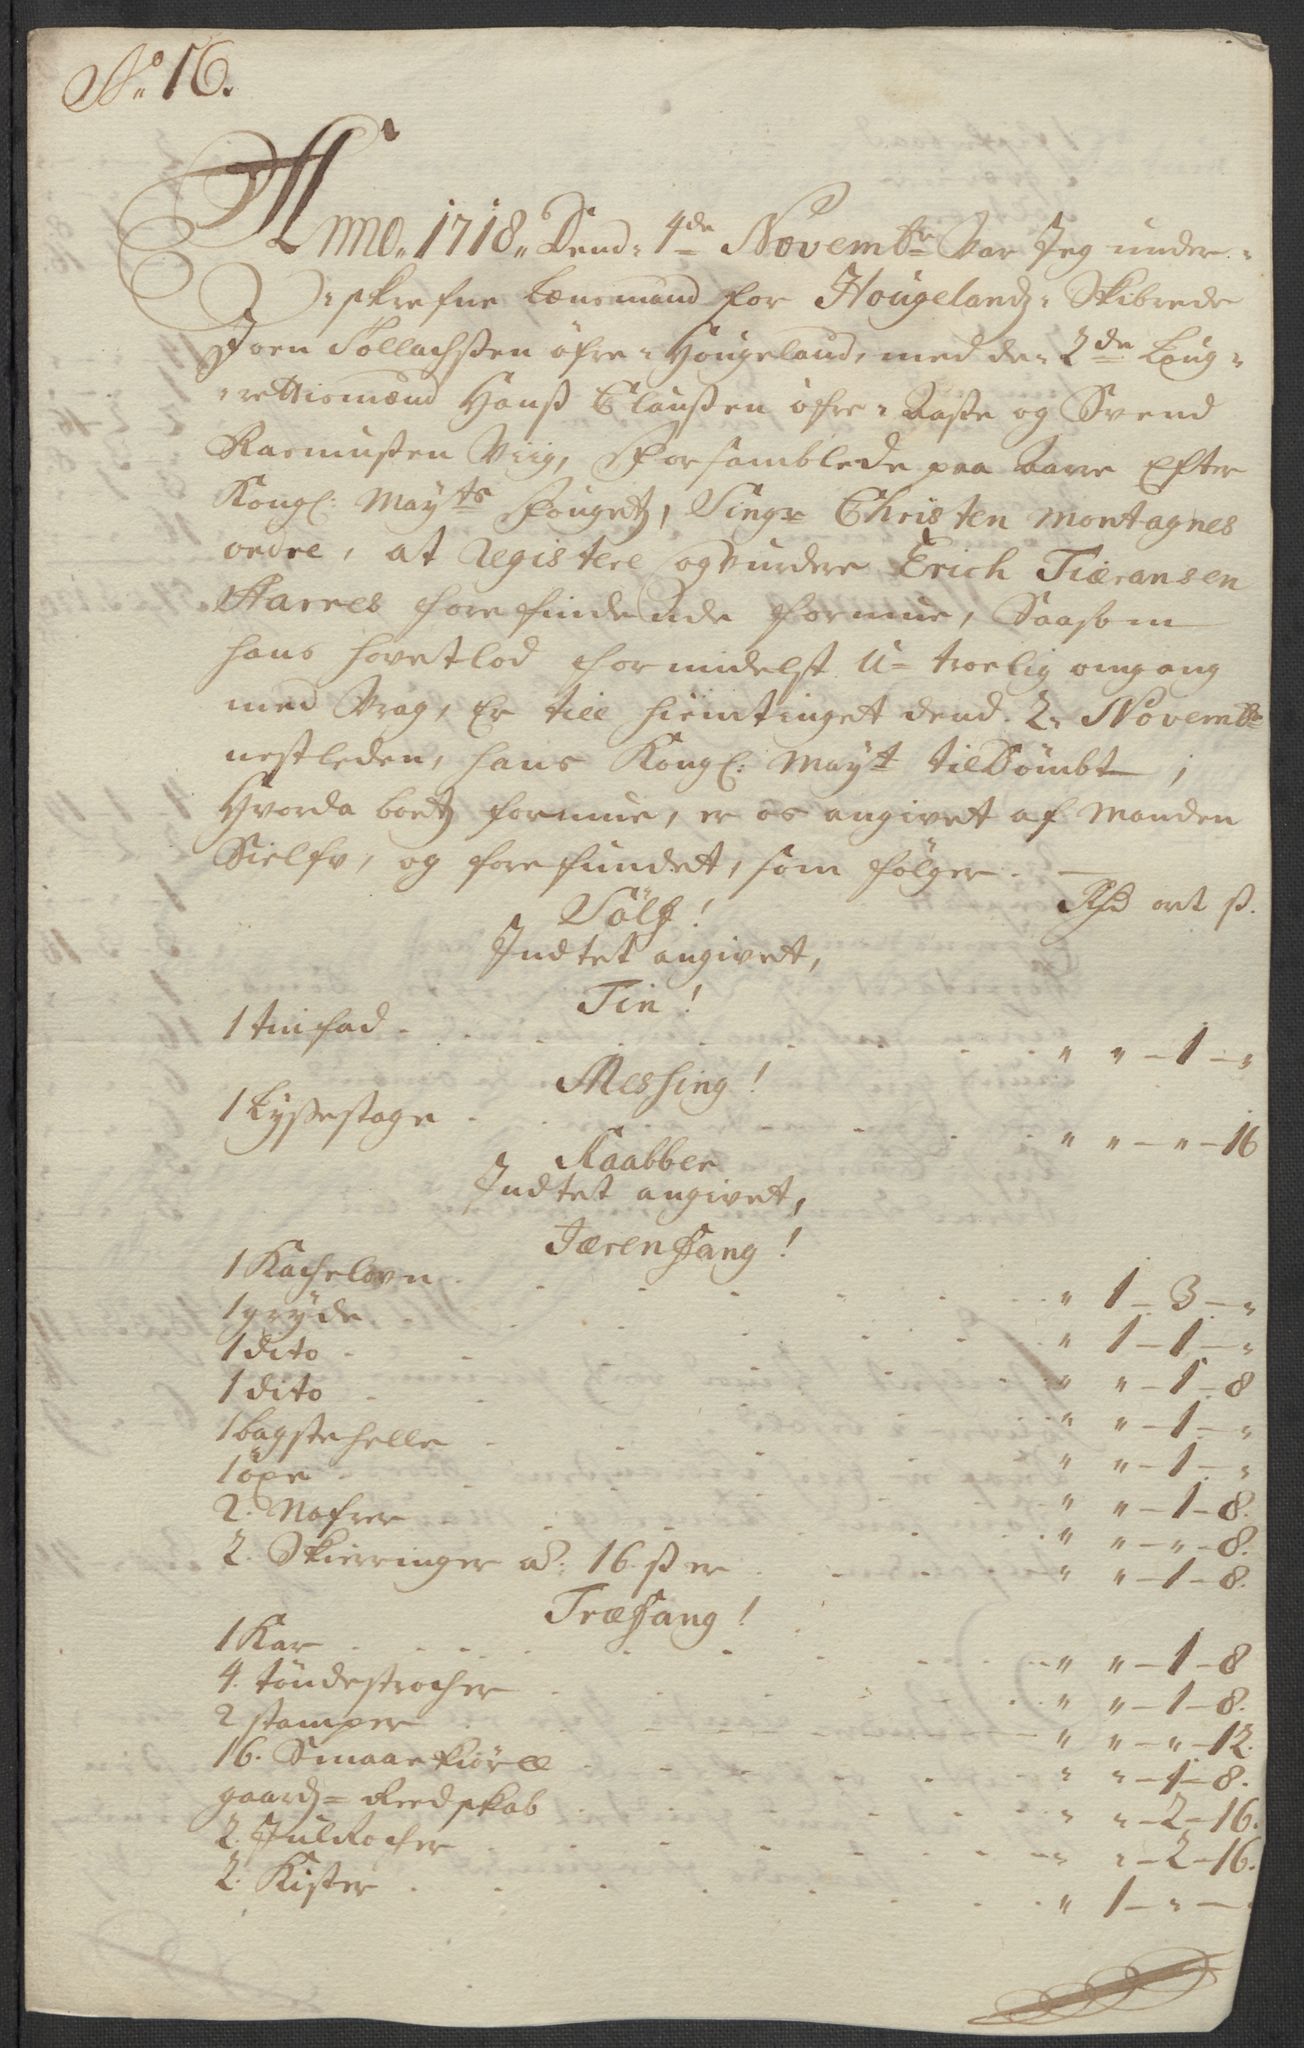 No. 16.
Anno. 1718. Dend. 4de Novembr Var Jeg under-
skrefne Lensmand for Hougelandz Skibrede
Joen Tollachsßen öfre-Hougeland, med de 2de Laug-
rettismend Hanß Clausßen öfre-Aaste og Svend
Rasmusßen Viig, Forsamblede paa Aare Efter
Kongl: Mayts Fougetz, Singr Christen Montagnes
ordre, at Registere og Vurdere Erich Tiæransen
Harres forefindende formue, Saasom
hans hovetlod formidelst U-troelig omgang
med Vrag, Er till hiemtinget dend. 2. Novembr
nestleden, hans Kongl: Mayt tildömbt;
Hvorda boetz formue, er os angivet af Manden
Sielfv, og forefundet, som fölger.
Rd ort ß.
Sölf!
Indtet angivet,
Tin!
1 tinfad . . . " " - 1 - "
Messing!
1 Lyßestage . . . " " - " - 16
Kaabber
Indtet angivet,
Jærenfang!
1 Kachelovn . . . " 1 - 3 - "
1 gryde . . . " 1 - 1 - "
1 dito . . . " " - 1 - 8
1 dito . . . " " - 1 - "
1 bagstehelle . . . " " - 1 - "
1 öxe . . . " " - 1 - 8.
2. Nafrer . . . " " - " - 8.
2. Skierringer a: 16. ß er . . . " " - 1 - 8.
Træfang!
1 Kar . . . " " - 1 - 8
4. töndestrocher . . . " " - 1 - 8.
2 stamper . . . " " - " - 12.
16. Smaae Kiörll . . . " " - 1 - 8.
gaardz-Reedskab . . . " " - 2 - 16.
2. Julrocher . . . " " - 2 - 16.
2. Kister . . . " 1 - " -